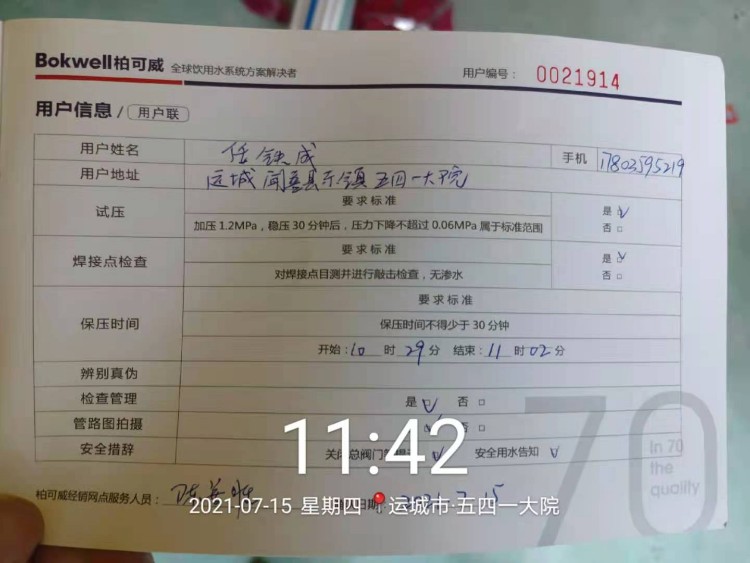 Bokwell柏可威 全球饮用水系统方案解决者 用户编号： 0021914
用户信息 / 用户联
用户姓名 任铁成 手机 17803595219
用户地址 运城闻喜县东镇五四一大院
试压 要求标准 是 ☑
加压1.2MPa，稳压30分钟后，压力下降不超过0.06MPa属于标准范围 否 □
焊接点检查 要求标准 是 ☑
对焊接点目测并进行敲击检查，无渗水 否 □
保压时间 要求标准
保压时间不得少于30分钟
开始：10时29分 结束：11时02分
辨别真伪
检查管理 是 ☑ 否 □
管路图拍摄 否 □
安全措辞 关闭总阀门 安全用水告知 ☑
11:42
70
In 70
the
quality
柏可威经销网点服务人员： 日期：
2021-07-15 星期四 运城市·五四一大院